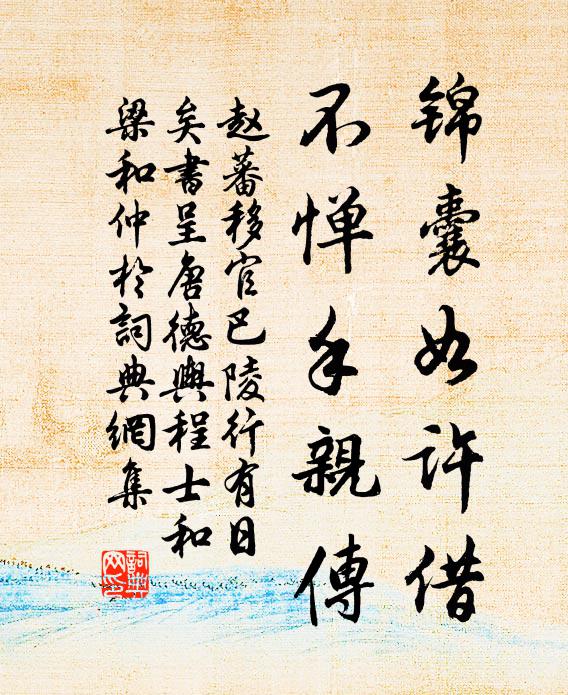 锦囊如许借
不惮手親傳
赵蕃移官巴陵行有日
矣書呈唐德輿程士和
梁和仲於詞典網集